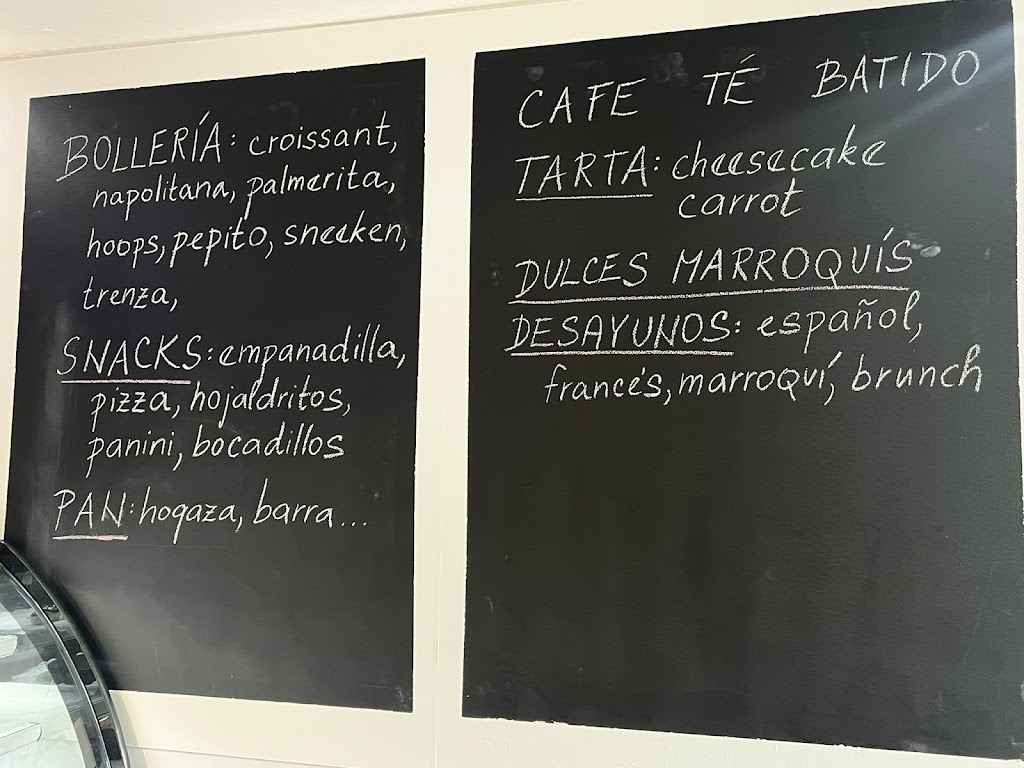 BOLLERÍA: croissant,
napolitana, palmerita,
hoops, pepito, sneeken,
trenza,
SNACKS: empanadilla,
pizza, hojaldritos,
panini, bocadillos
PAN: hogaza, barra...
CAFE TÉ BATIDO
TARTA: cheesecake
carrot
DULCES MARROQUÍS
DESAYUNOS: español,
francés, marroquí, brunch